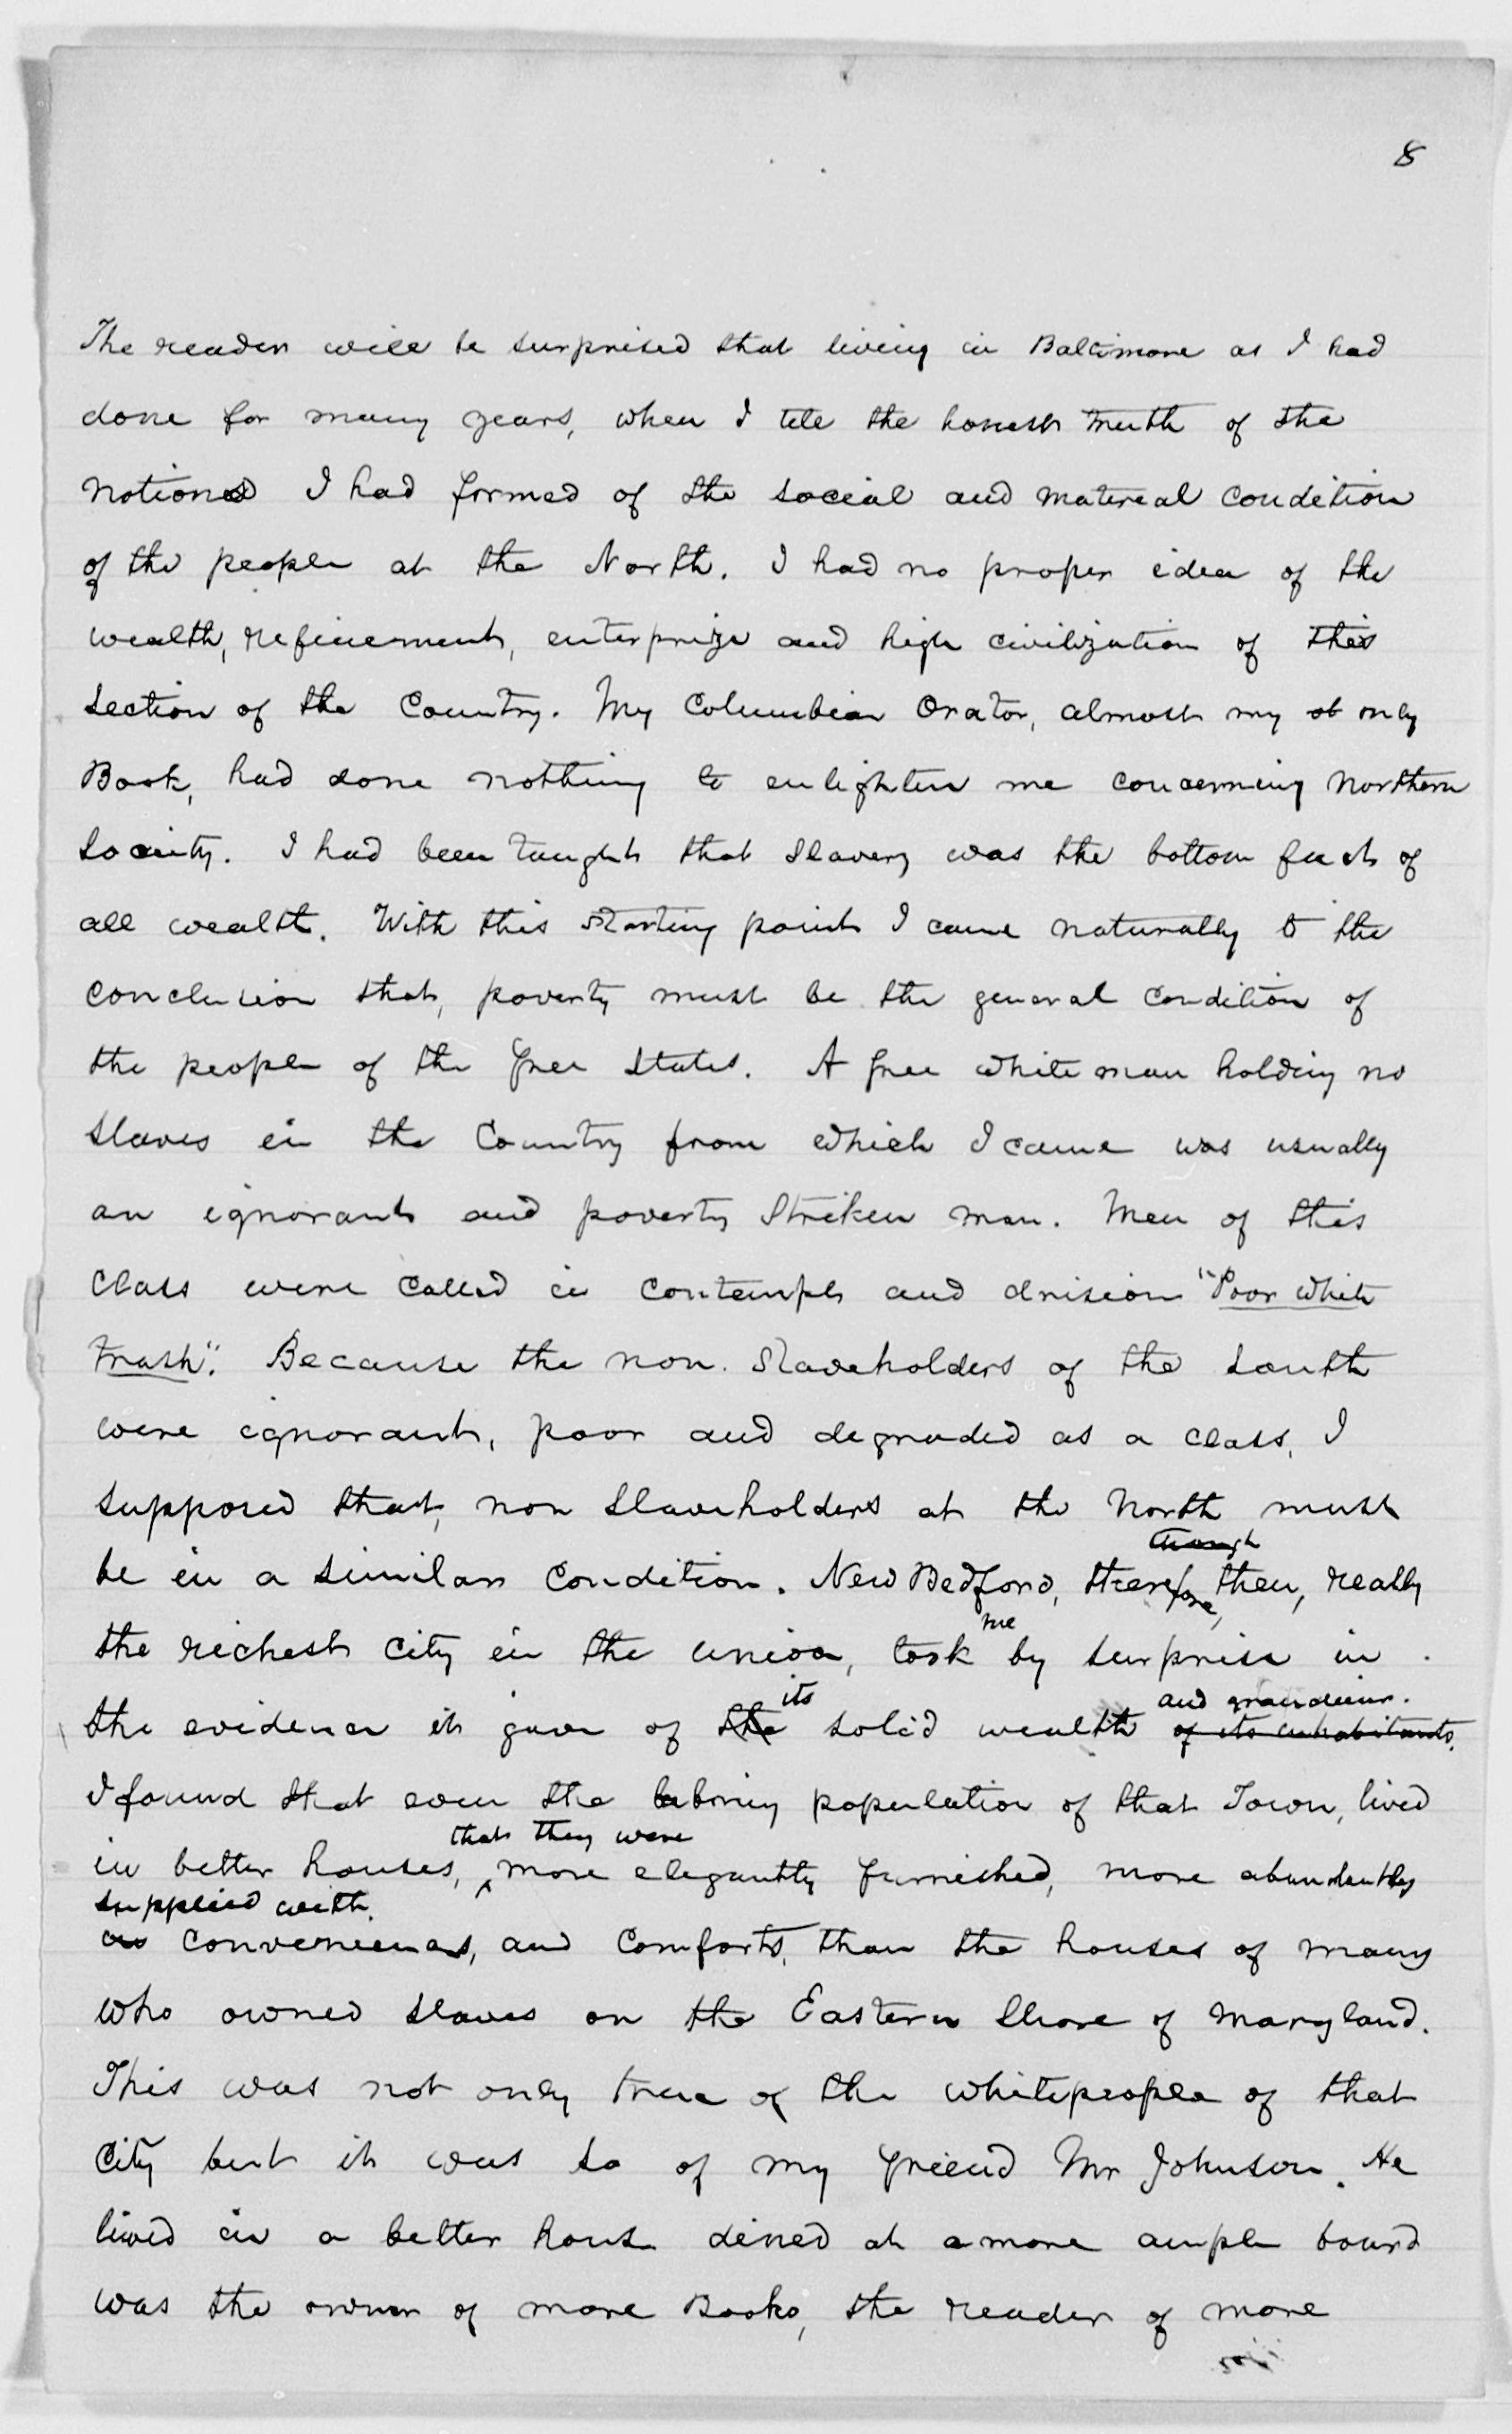 8
The reader will be surprised that living in Baltimore as I had
done for many years, when I tell the honest truth of the
notions I had formed of the social and matereal condition
of the people at the North. I had no proper idea of the
wealth, refinement, enterprize and high civilization of this
section of the Country. My Columbian Orator, almost my only
Book, had done nothing to enlighten me concerning Northern
Society. I had been taught that Slavery was the bottom fact of
all wealth. With this starting point I came naturally to the
conclusion that, poverty must be the general condition of
the people of the free States. A free white man holding no
slaves in the Country from which I came was usually
an ignorant and poverty Striken man. Men of this
Class were called in contempt and drision "Poor white
trash". Because the non. Slaveholders of the South
were ignorant, poor and degraded as a class, I
supposed that, non Slaveholders at the North must
though
be in a similar condition. New Bedford, therefore, then, really
me
the richest City in the union, took by surprise in
its and grandeur.
the evidence it gave of the solid wealth of its inhabitants.
I found that even the laboring population of that Town, lived
that they were
in better houses, ^ more elegantly furnished, more abundantly
supplied with
conveniences, and comforts, than the houses of many
who owned slaves on the Eastern Shore of Maryland.
This was not only true of the white people of that
City but it was so of my friend Mr Johnson. He
lived in a better house dined at a more ample board
was the owner of more Books, the reader of more